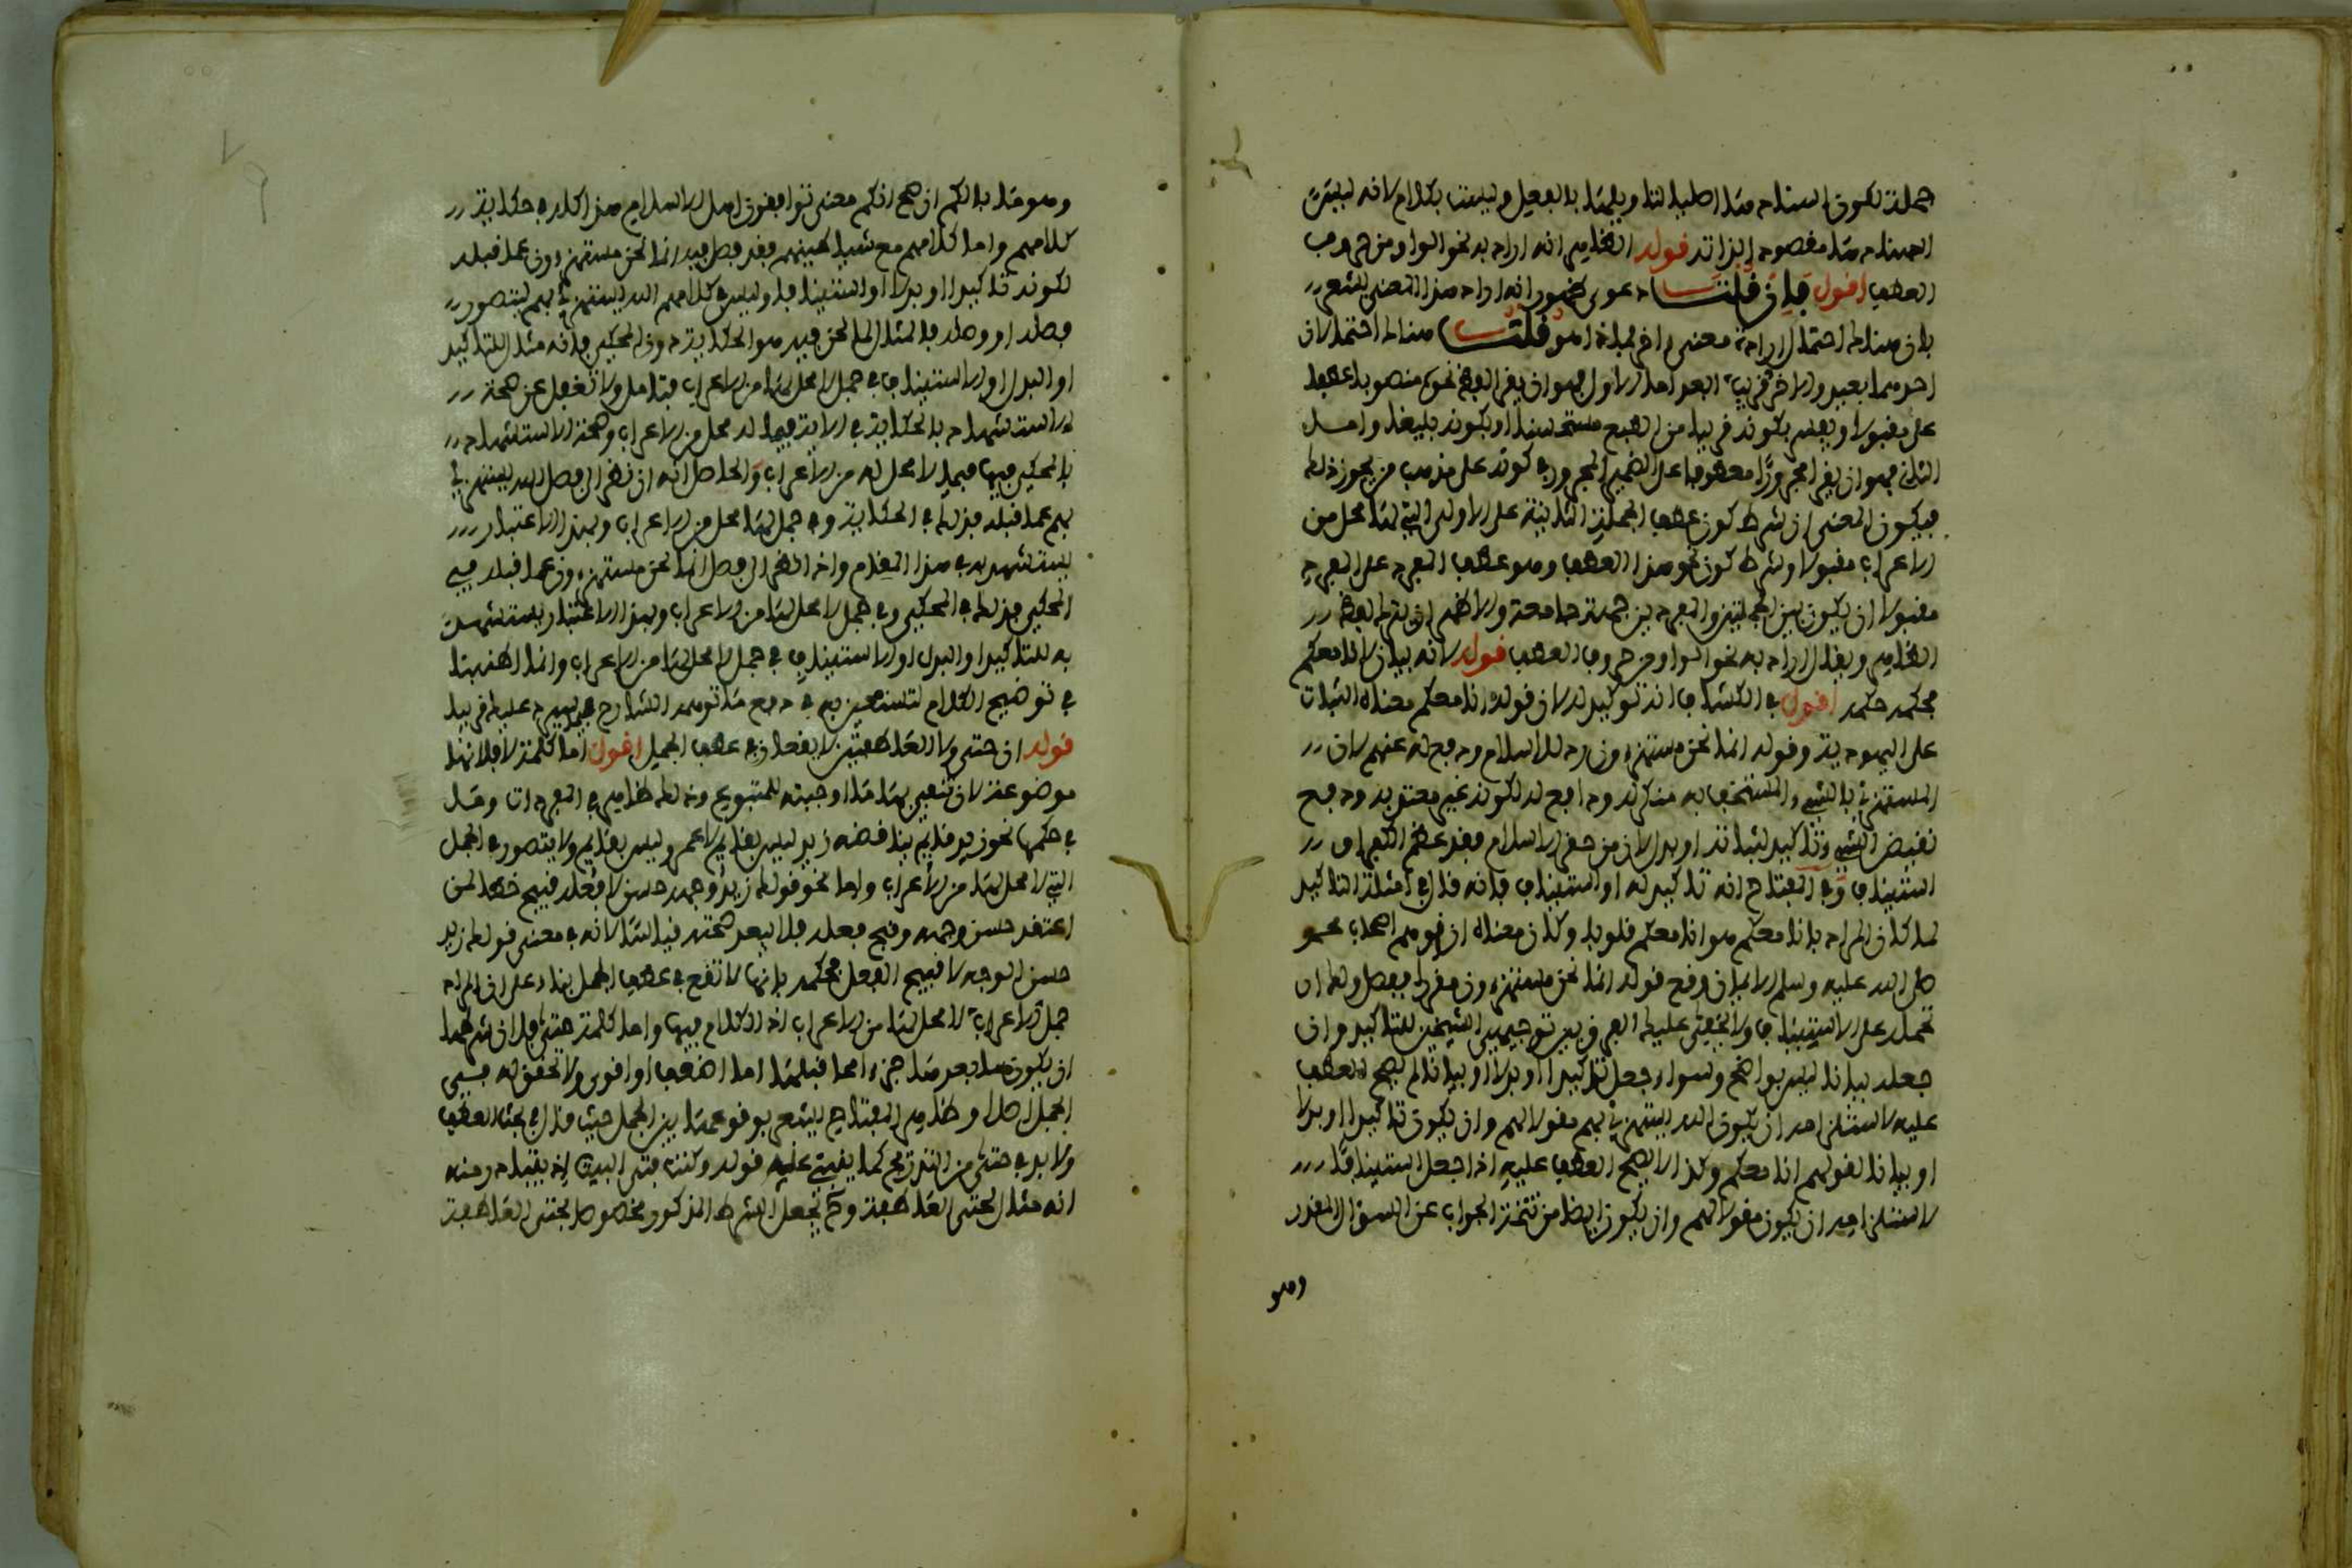 جملة لكون اسنادها اصليا لتاويلها بالفعل وليست بكلام لانه ليست
اسنادها مقصودا لذاته قوله الظاهر انه اراد به نحو الواو من حروف
العطف اقول فان قلت دعوى ظهور انه اراد هذا المعنى يشعر
بان هناك احتمال ارادة معنى اخر فما ذا هو قلت هناك احتمالان
احدهما بعيد والاخر قريب اما الاول فهو ان يقرا نحوه منصوبا عطفا
على مقبولا ويفسر بكونه قريبا من الطبع مستحسنا او بكونه بليغا واما
الثاني فهو ان يقرا مجرورا معطوفا على الضمير المجرور في كونه على مذهب من يجوز ذلك
فيكون المعنى ان شرط كون عطف الجملة الثانية على الاولى التي لها محل من
الاعراب مقبولا وشرط كون نحو هذا العطف وهو عطف المفرد على المفرد
مقبولا ان يكون بين الجملتين والمفردين جهة جامعة والاظهر ان يترك لفظ
الظاهر ويقال اراد به نحو الواو من حروف العطف قوله لانه بيان لانا معكم
فحكمه حكمه اقول في الكشاف انه توكيد له لان قوله انا معكم معناه الثبات
على اليهودية وقوله انما نحن مستهزءون رد للاسلام ودفع له عنهم لان
المستهزئ بالشيء والمستخف به منكر له ودافع له لكونه غير معتد به ودفع
نقيض الشيء تاكيد لثباته او بدل لان من حقر الاسلام فقد عظم الكفر او
استيناف وفي المفتاح انه تاكيد له او استيناف فانه قال في امثلة التاكيد
لما كان المراد بانا معكم هو انا معكم قلوبا وكان معناه انا نوهم اصحاب محمد
صلى الله عليه وسلم الايمان وقع قوله انما نحن مستهزءون مقررا ففصل ولك ان
تحمله على الاستيناف ولا يخفى عليك الفرق بين توجيهي الشيخين للتاكيد وان
جعله بيانا ليس بواضح وسواء جعل تاكيدا او بدلا او بيانا لم يصح العطف
عليه لاستلزامه ان يكون الله يستهزئ بهم مقولا لهم وان يكون تاكيدا او بدلا
او بيانا لقولهم انا معكم وكذا لا يصح العطف عليه اذا جعل استينافا
لاستلزامه ان يكون مقولا لهم وان يكون ايضا من تتمة الجواب عن السؤال المقدر
وهو
وهو ما بالكم ان صح انكم معنى توافقون اهل الاسلام هذا كله في حكاية
كلامهم واما كلامهم مع شياطينهم فقد فصل فيه انما نحن مستهزءون عما قبله
لكونه تاكيدا او بدلا او استينافا وليس في كلامهم الله يستهزئ بهم ليتصور
فصله او وصله فالمثال لما نحن فيه هو الحكاية دون المحكي فانه مثال للتاكيد
او البدل او الاستيناف في جمل لا محل لها من الاعراب فتامل ولا تغفل عن صحة
الاستشهاد بالحكاية في الاية فيما له محل من الاعراب وصحة الاستشهاد
بالمحكي فيها فيما لا محل له من الاعراب والحاصل انه ان نظر الى فصل الله يستهزئ
بهم عما قبله فذلك في الحكاية وفي جمل لها محل من الاعراب وبهذا الاعتبار
يستشهد به في هذا المقام واذا نظر الى فصل انما نحن مستهزءون عما قبله في
المحكي فذلك في المحكي وفي جمل لا محل لها من الاعراب وبهذا الاعتبار يستشهد
به للتاكيد او البدل او الاستيناف في جمل لا محل لها من الاعراب وانما اطنبنا
في توضيح الكلام لتستعين به في دفع ما توهمه الشارح فيما سيرد عليك قريبا
قوله ان حتى ولا العاطفتين لا يقعان في عطف الجمل اقول اما كلمة لا فلانها
موضوعة لان تنفي بها ما اوجبته للمتبوع وذلك ظاهر في المفردات وما
في حكمها نحو زيد قائم يناقضه زيد ليس بقائم لا عمرو ليس بقائم ولا يتصور في الجمل
التي لا محل لها من الاعراب واما نحو قولك زيد وجهه حسن لا فعله قبيح خطابا لمن
اعتقد حسن وجهه وقبح فعله فلا يبعد صحته قياسا لانه في معنى قولك زيد
حسن الوجه لا قبيح الفعل فحكمه بانها لا تقع في عطف الجمل بناء على ان المراد
جمل لا اعراب لا محل لها من الاعراب اذ الكلام فيها واما كلمة حتى فلان شرطها
ان يكون ما بعدها جزءا مما قبلها اما اضعف او اقوى ولا تحقق له في
الجمل اصلا وظاهر المفتاح يشعر بوقوعها بين الجمل حيث قال في بحث العطف
ولا بد في حتى من التدريج كما ينبئ عليه قوله وكنت فتى البيت اذ يتبادر منه
انه مثال لحتى العاطفة وان تجعل الشرط المذكور مخصوصا بحتى العاطفة